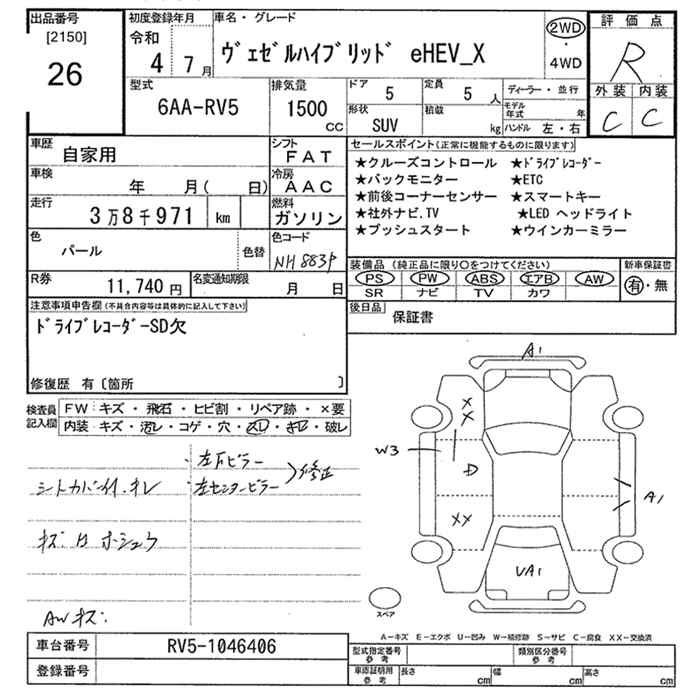 出品番号
[2150]
26
初度登録年月
令和
4 7月
車名・グレード
ヴェゼルハイブリッド eHEV_X
2WD
・
4WD
評価点
R
外装 内装
C C
型式
6AA-RV5
排気量
1500 CC
ドア
5
定員
5 人
形状
SUV
積載
kg
ディーラー・並行
モデル年式 年
ハンドル 左・右
車歴
自家用
シフト
FAT
車検
年 月( 日)
冷房
AAC
走行
3万8千971 km
燃料
ガソリン
色
パール
色替
色コード
NH883P
R券
11,740円
名変通知期限
月 日
セールスポイント(正常に機能するものに限ります)
★クルーズコントロール ★ドライブレコーダー
★バックモニター ★ETC
★前後コーナーセンサー ★スマートキー
★社外ナビ.TV ★LED ヘッドライト
★プッシュスタート ★ウインカーミラー
装備品(純正品に限り○をつけてください)
PS PW ABS エアB AW
SR ナビ TV カワ
新車保証書
有・無
後日品
保証書
注意事項申告欄(不具合内容等は具体的に記入して下さい)
ドライブレコーダーSD欠
修復歴 有〔箇所 〕
検査員記入欄
FW:キズ・飛石・ヒビ割・リペア跡・×要
内装:キズ・汚レ・コゲ・穴・スレ・キレ・破レ
・左Fピラー
・左センターピラー 〉修正
シートカバー付.キレ
AWキズ.
A1
X
X
W3
D
XX
A1
UA1
スペア
A-キズ E-エクボ U-凹み W-補修跡 S-サビ C-腐食 XX-交換済
車台番号
RV5-1046406
登録番号
型式指定番号
参考
類別区分番号
参考
車認証明用
参考
長さ cm
幅 cm
高さ cm